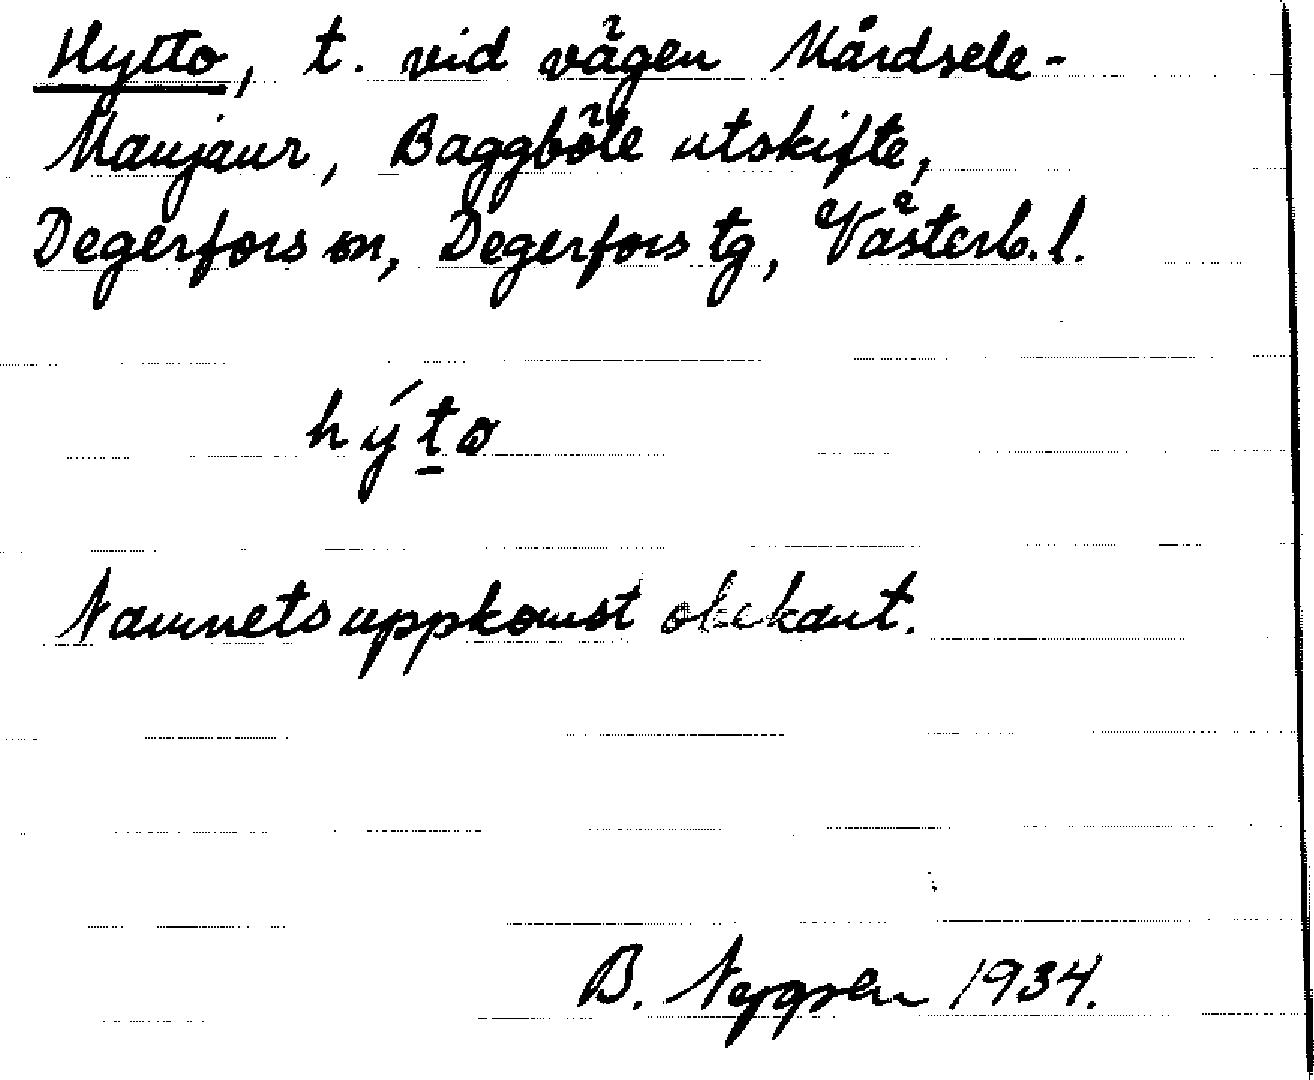 Hytto, t. vid vägen Mårdsele-
Manjaur, Baggböle utskifte,
Degerfors sn, Degerfors tg, Västerb. l.
hýt̠o
Namnets uppkomst obekant.
B. 1934.